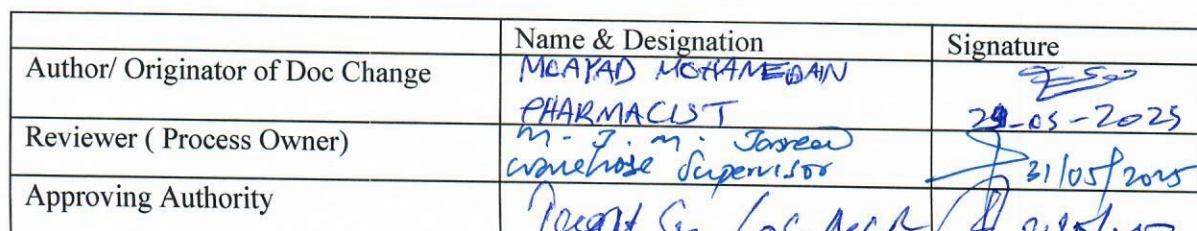 Name & Designation Signature
Author/ Originator of Doc Change MOAYAD MOHAMEDAIN
PHARMACIST 29-05-2025
Reviewer ( Process Owner) M. J. M.
warehose Supervisor 31/05/2025
Approving Authority